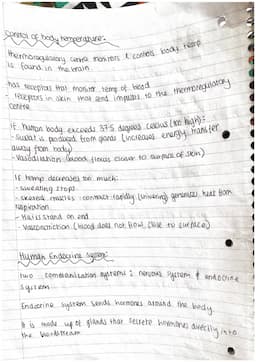 Control of body temperature:
thermoregulatory centre monitors & controls body temp
is found in the brain
has receptors that monitor temp of blood
- receptors in skin that send impulses to the thermoregulatory
centre
If human body exceeds 37.5 degrees celcius (too high):
- sweat is produced from glands (increases energy transfer
away from body)
- vasodilation (blood flows closer to surface of skin)
If temp decreases too much:
- sweating stops
- skeletal muscles contract rapidly (shivering) generates heat from
respiration
- Hairs stand on end
- Vasoconstriction (blood does not flow close to surface)
Human Endocrine System:
Two communication systems: nervous system & endocrine
system
Endocrine system sends hormones around the body
It is made up of glands that secrete hormones directly into
the bloodstream